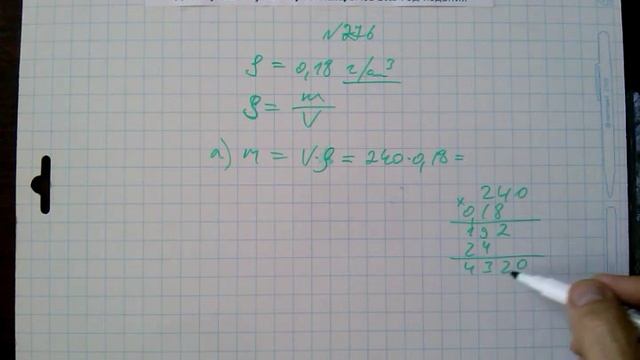 №276
ρ = 0,18 г/см³
ρ = m/V
а) m = V·ρ = 240·0,18 =
240
× 0,18
192
24
4320